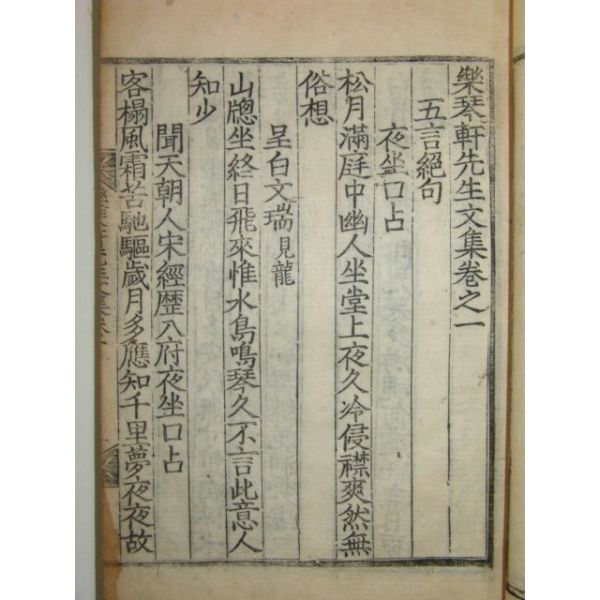 樂琴軒先生文集卷之一
五言絕句
夜坐口占
松月滿庭中幽人坐堂上夜久冷侵襟爽然無
俗想
呈白文瑞見龍
山牕坐終日飛來惟水鳥鳴琴久不言此意人
知少
聞天朝人宋經歷入府夜坐口占
客榻風霜苦馳驅歲月多應知千里夢夜夜故